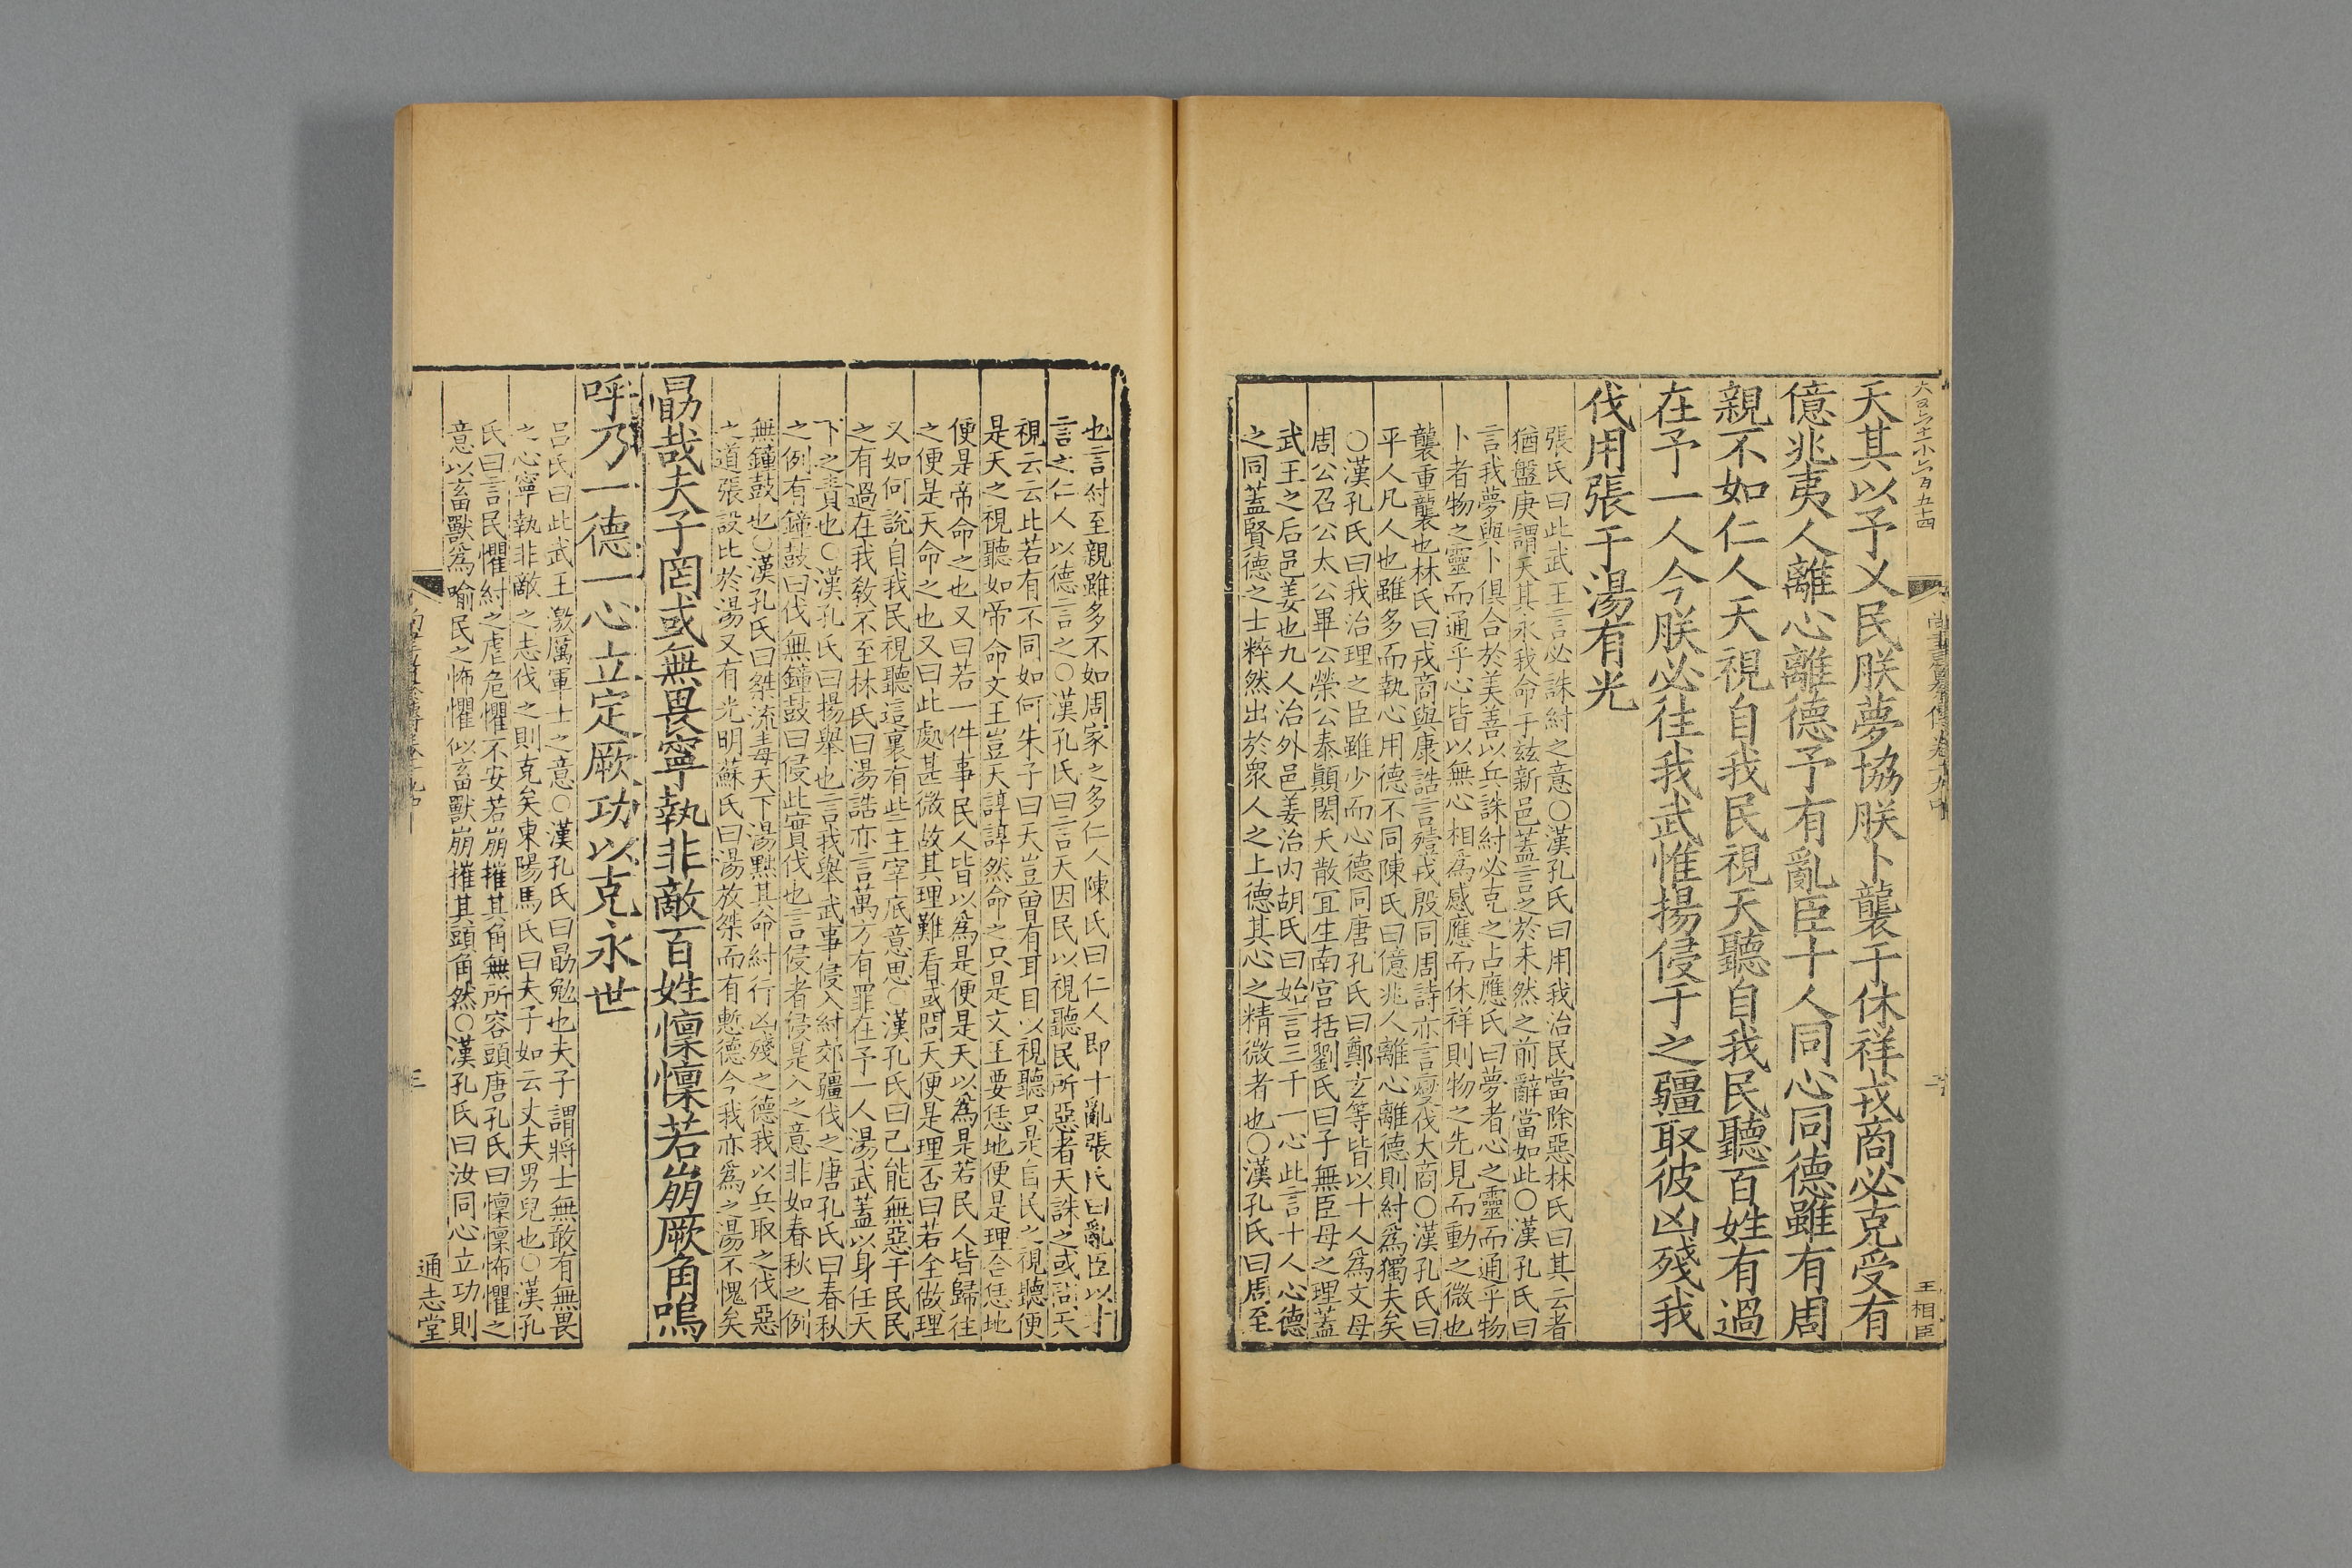 天其以予乂民朕夢協朕卜襲于休祥戎商必克受有
億兆夷人離心離德予有亂臣十人同心同德雖有周
親不如仁人天視自我民視天聽自我民聽百姓有過
在予一人今朕必往我武惟揚侵于之疆取彼凶殘我
伐用張于湯有光
張氏曰此武王言必誅紂之意○漢孔氏曰用我治民當除惡林氏曰其云者
猶盤庚謂天其永我命于兹新邑蓋言之於未然之前辭當如此○漢孔氏曰
言我夢與卜俱合於美善以兵誅紂必克之占應氏曰夢者心之靈而通乎物
卜者物之靈而通乎心皆以無心相爲感應而休祥則物之先見而動之微也
襲重襲也林氏曰戎商與康誥言殪戎殷同周詩亦言燮伐大商○漢孔氏曰
平人凡人也雖多而執心用德不同陳氏曰億兆人離心離德則紂爲獨夫矣
○漢孔氏曰我治理之臣雖少而心德同唐孔氏曰鄭玄等皆以十人爲文母
周公召公太公畢公榮公泰顚閎夭散宜生南宫括劉氏曰子無臣母之理蓋
武王之后邑姜也九人治外邑姜治内胡氏曰始言三千一心此言十人心德
之同蓋賢德之士粹然出於衆人之上德其心之精微者也○漢孔氏曰周至
王相臣
也言紂至親雖多不如周家之多仁人陳氏曰仁人即十亂張氏曰亂臣以才
言之仁人以德言之○漢孔氏曰言天因民以視聽民所惡者天誅之或詰天
視云云此若有不同如何朱子曰天豈曽有耳目以視聽只是自民之視聽便
是天之視聽如帝命文王豈天諄諄然命之只是文王要恁地便是理合恁地
便是帝命之也又曰若一件事民人皆以爲是便是天以爲是若民人皆歸往
之便是天命之也又曰此處甚微故其理難看或問天便是理否曰若全做理
又如何說自我民視聽這裏有些主宰底意思○漢孔氏曰己能無惡于民民
之有過在我教不至林氏曰湯誥亦言萬方有罪在予一人湯武蓋以身任天
下之責也○漢孔氏曰揚舉也言我舉武事侵入紂郊疆伐之唐孔氏曰春秋
之例有鐘鼓曰伐無鐘鼓曰侵此實伐也言侵者侵是入之意非如春秋之例
無鐘鼓也○漢孔氏曰桀流毒天下湯黜其命紂行凶殘之德我以兵取之伐惡
之道張設比於湯又有光明蘇氏曰湯放桀而有慙德今我亦爲之湯不愧矣
勗哉夫子罔或無畏寧執非敵百姓懍懍若崩厥角嗚
呼乃一德一心立定厥功以克永世
吕氏曰此武王激厲軍士之意○漢孔氏曰勗勉也夫子謂將士無敢有無畏
之心寧執非敵之志伐之則克矣東陽馬氏曰夫子如云丈夫男兒也○漢孔
氏曰言民懼紂之虐危懼不安若崩摧其角無所容頭唐孔氏曰懍懍怖懼之
意以畜獸爲喻民之怖懼似畜獸崩摧其頭角然○漢孔氏曰汝同心立功則
三
通志堂